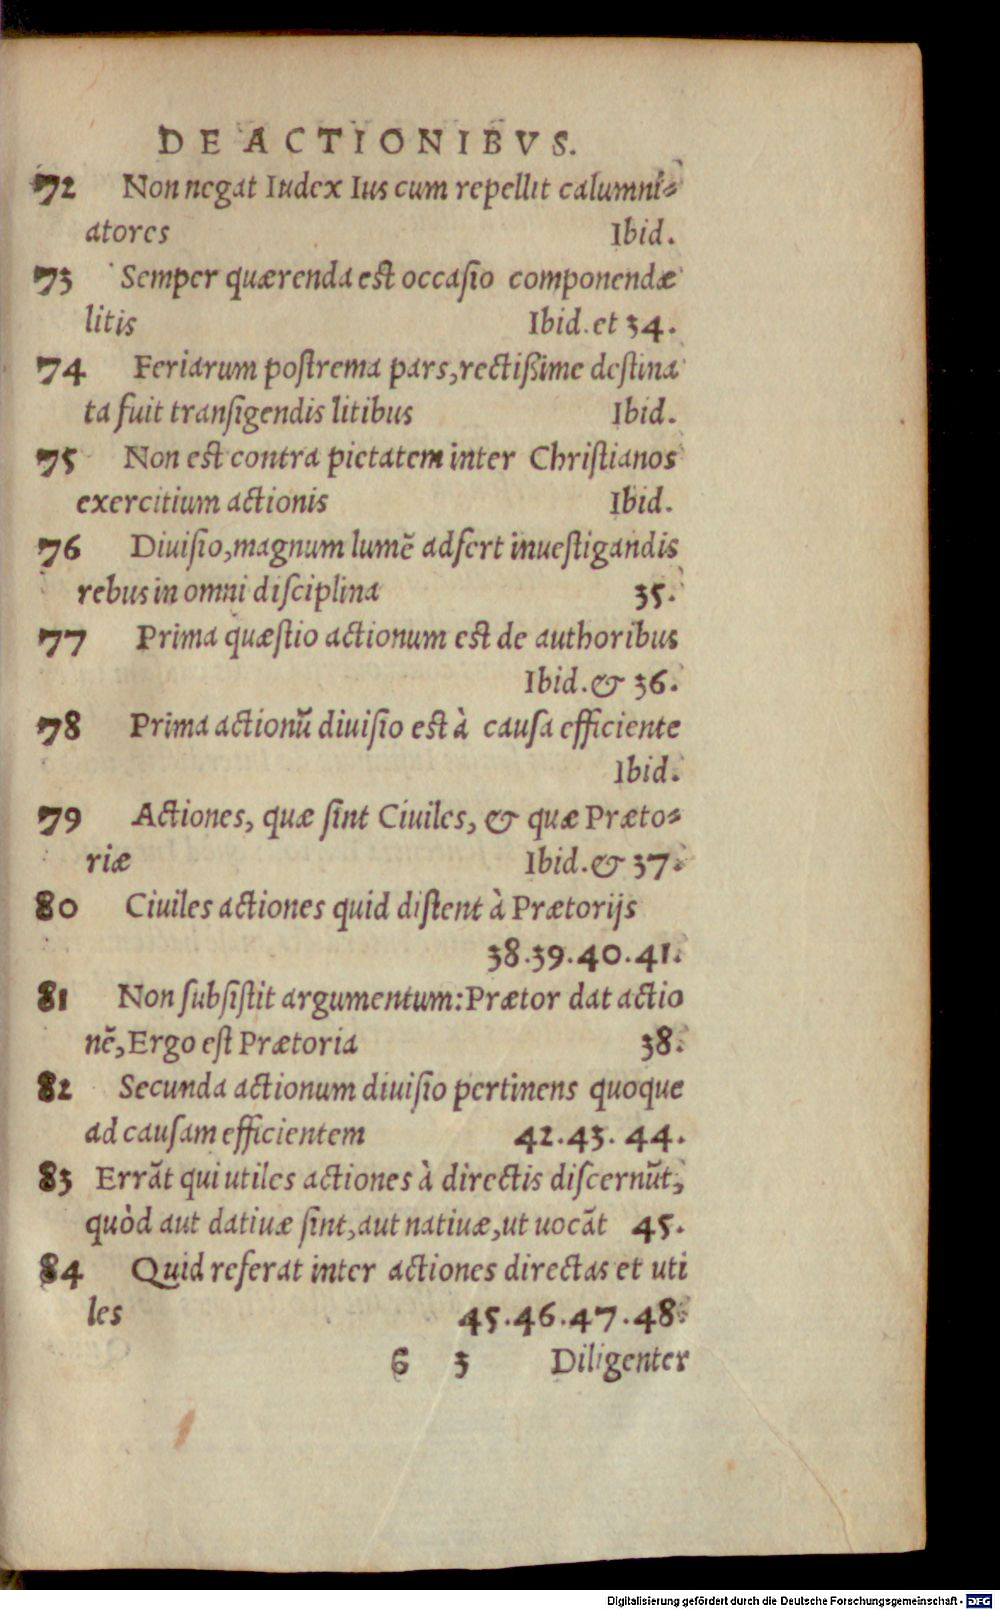 DE ACTIONIBVS.
72 Non negat Iudex Ius cum repellit calumni-
atores Ibid.
73 Semper quærenda est occaſio componendæ
litis Ibid. et 34.
74 Feriarum poſtrema pars, rectißime deſtina
ta fuit tranſigendis litibus Ibid.
75 Non est contra pietatem inter Chriſtianos
exercitium actionis Ibid.
76 Diuiſio, magnum lumē adfert inueſtigandis
rebus in omni diſciplina 35.
77 Prima quæſtio actionum est de authoribus
Ibid. & 36.
78 Prima actionū diuiſio est à cauſa efficiente
Ibid.
79 Actiones, quæ ſint Ciuiles, & quæ Præto-
riæ Ibid. & 37.
80 Ciuiles actiones quid diſtent à Prætorijs
38.39.40.41.
81 Non ſubſiſtit argumentum: Prætor dat actio
nē, Ergo eſt Prætoria 38.
82 Secunda actionum diuiſio pertinens quoque
ad cauſam efficientem 42.43. 44.
83 Errāt qui utiles actiones à directis diſcernūt,
quòd aut datiuæ ſint, aut natiuæ, ut uocāt 45.
84 Quid referat inter actiones directas et uti
les 45.46.47.48.
6 3 Diligenter
Digitalisierung gefördert durch die Deutsche Forschungsgemeinschaft - DFG